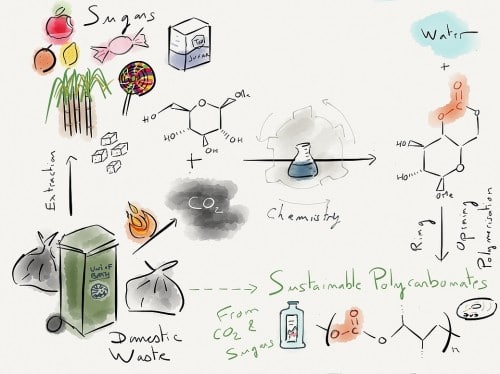 Sugars
Tea
SUGAR
Water
+
O
O
O
O
HO
HO
OMe
HO
O
OMe
HO
HO
OH
+
CO2
Chemistry
Extraction
Uni of
BATH
Domestic
Waste
Ring
Opening
Polymerisation
Sustainable Polycarbonates
From
CO2 &
Sugars
O
O
O
n